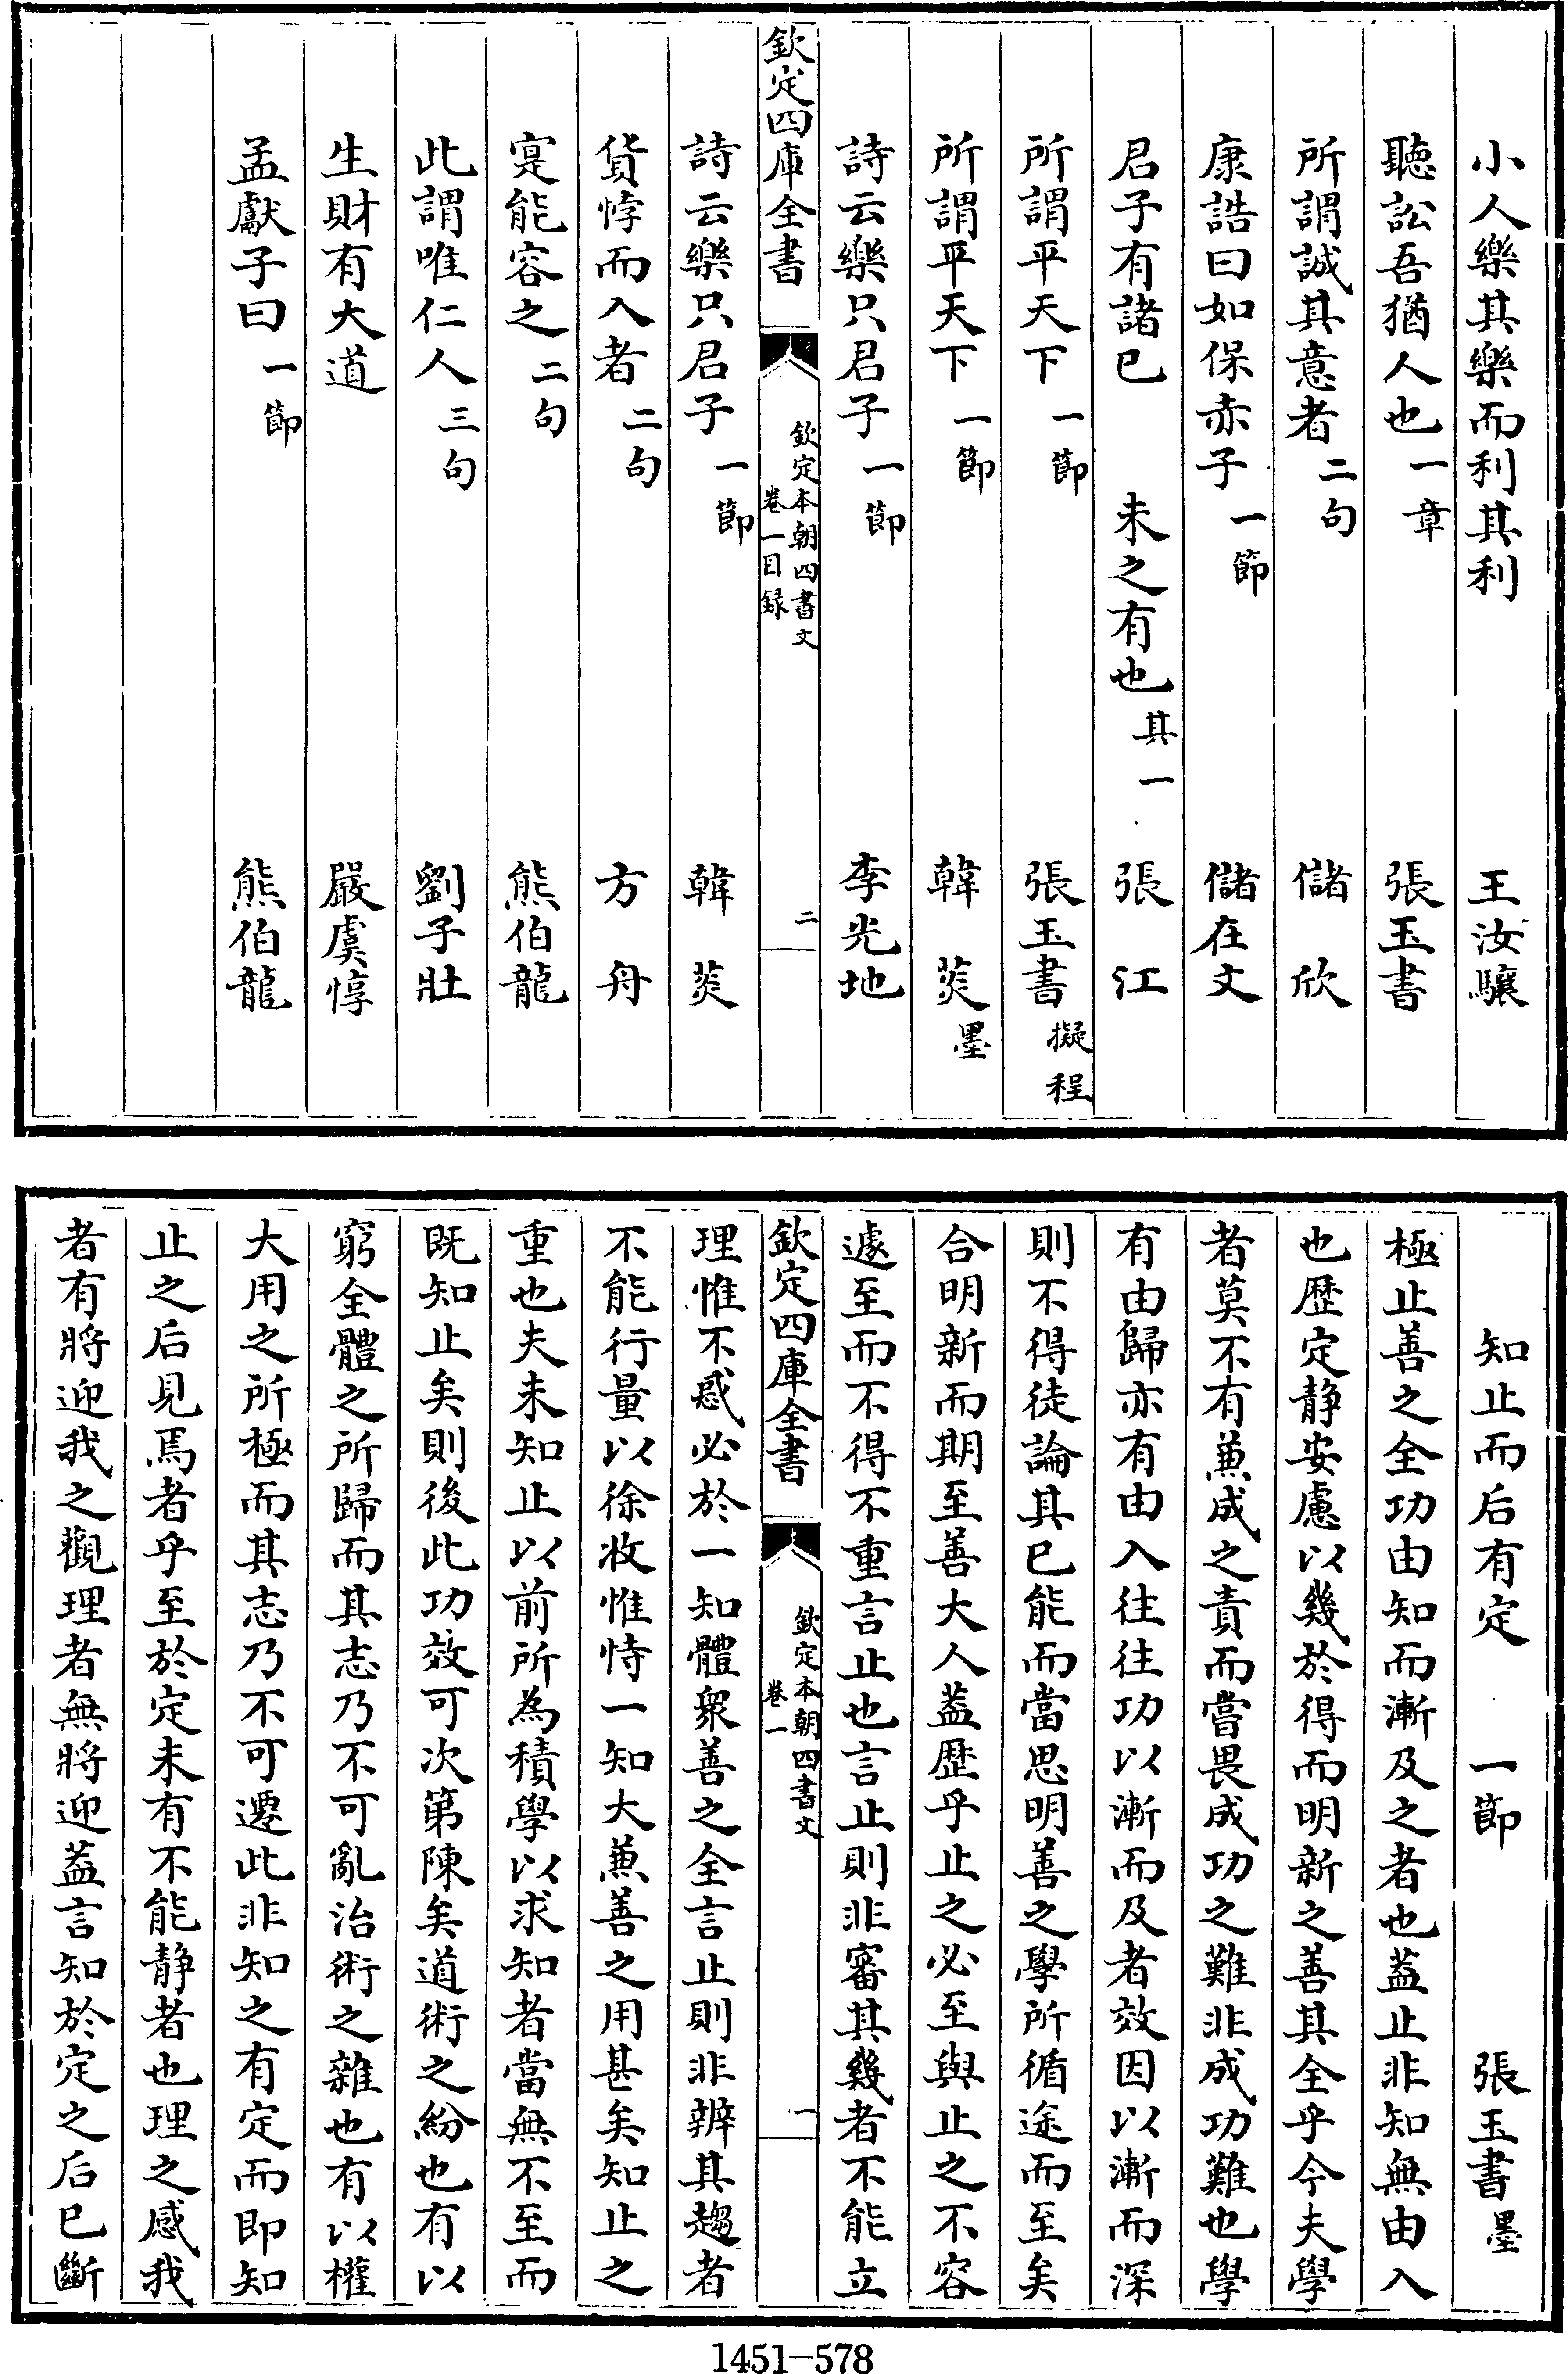 小人樂其樂而利其利 王汝驤
聽訟吾猶人也一章 張玉書
所謂誠其意者二句 儲欣
康誥曰如保赤子一節 儲在文
君子有諸已 未之有也其一 張江
所謂平天下一節 張玉書擬程
所謂平天下一節 韓菼墨
詩云樂只君子一節 李光地
欽定四庫全書 欽定本朝四書文 卷一目録 二
詩云樂只君子一節 韓菼
貨悖而入者二句 方舟
寔能容之二句 熊伯龍
此謂唯仁人三句 劉子壯
生財有大道 嚴虞惇
孟獻子曰一節 熊伯龍
知止而后有定 一節 張玉書墨
極止善之全功由知而漸及之者也葢止非知無由入
也歷定静安慮以幾於得而明新之善其全乎今夫學
者莫不有兼成之責而嘗畏成功之難非成功難也學
有由歸亦有由入往往功以漸而及者效因以漸而深
則不得徒論其已能而當思明善之學所循途而至矣
合明新而期至善大人葢歷乎止之必至與止之不容
遽至而不得不重言止也言止則非審其幾者不能立
欽定四庫全書 欽定本朝四書文 卷一 一
理惟不惑必於一知體衆善之全言止則非辨其趨者
不能行量以徐收惟恃一知大兼善之用甚矣知止之
重也夫未知止以前所為積學以求知者當無不至而
既知止矣則後此功效可次第陳矣道術之紛也有以
窮全體之所歸而其志乃不可亂治術之雜也有以權
大用之所極而其志乃不可遷此非知之有定而即知
止之后見焉者乎至於定未有不能静者也理之感我
者有將迎我之觀理者無將迎葢言知於定之后已斷
1451-578